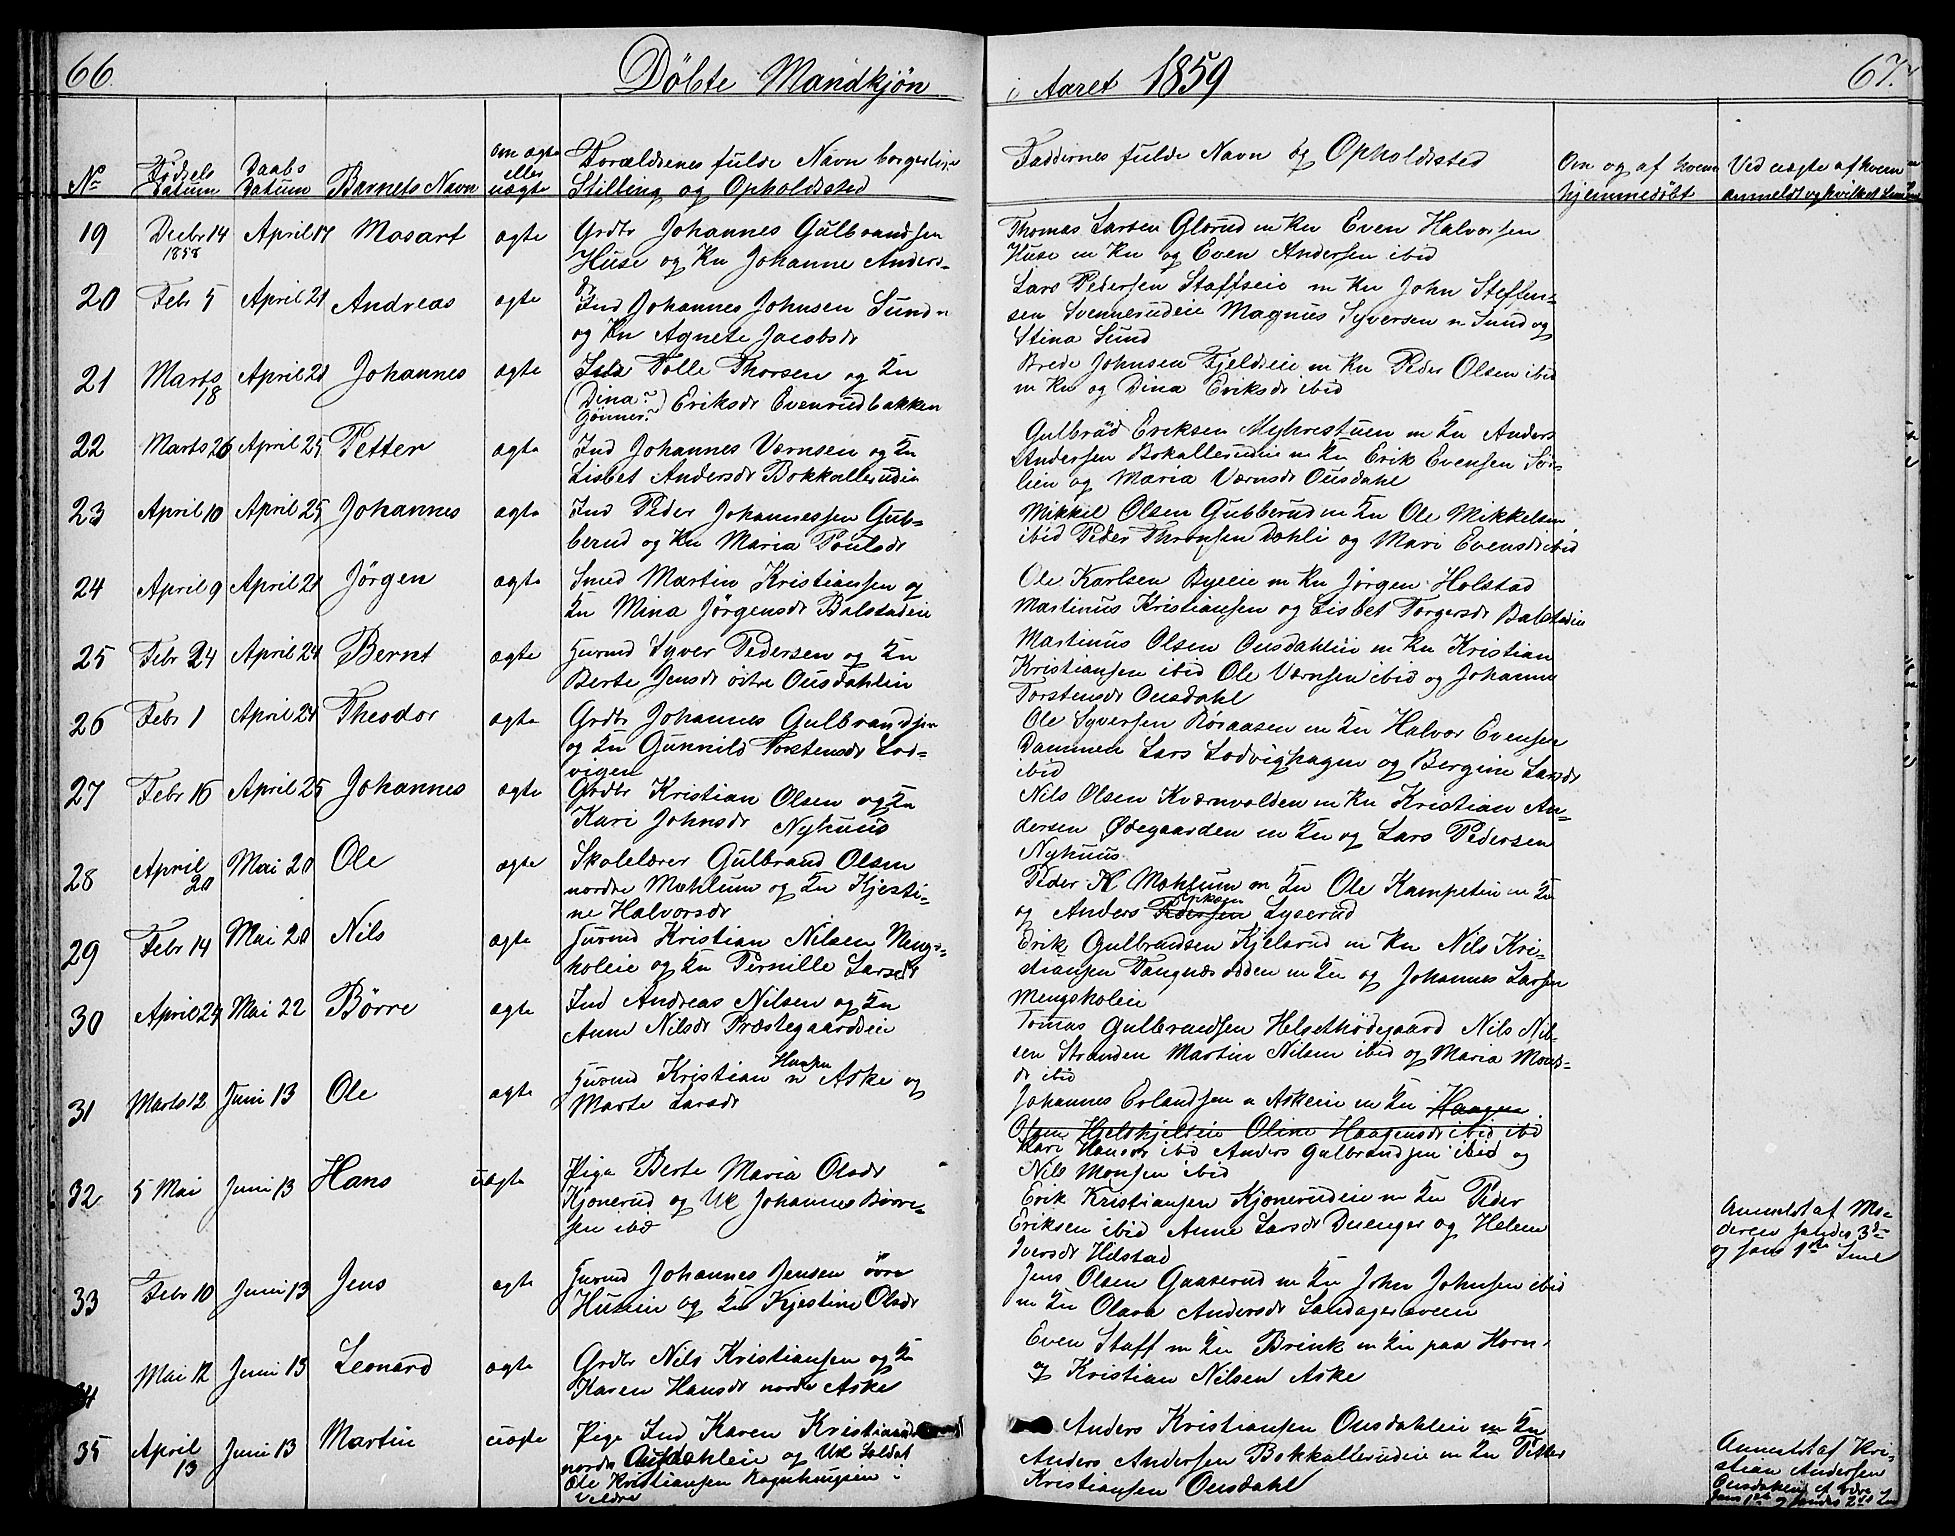 66
Döbte Mandkjøn
i Aaret 1859
67.
No
Födsels Datum
Daabs Datum
Barnets Navn
om ægte eller uægte
Forældrenes fulde Navn borgerlige
Stilling og Opholdsted
Faddernes fulde Navn og Opholdsted
Om og af hvem
hjemmedöbt
Ved uægte af hvem
anmeldt og hvilket
19 Decbr 14 1858 April 17 Mosart ægte Grdbr Johannes Gulbrandsen
Huse og Kn Johanne Anders-
dr
Thomas Larsen Glørud m Kn Even Halvorsen
Huse m Kn og Even Andersen ibid
20 Febr 5 April 21 Andreas ægte Ind Johannes Johnsen Sund
og Kn Agnete Jacobsdr
Lars Pedersen Staffseie m Kn John Steffen-
sen Svennerudeie Magnus Syversen n Sund og
Stina Sund
21 Marts 18 April 21 Johannes ægte Tolle Thorsen og Kn
(Dina? Gönner?) Eriksdr Evenrudbakken
Brede Johnsen Fjeldseie m Kn Peder Olsen ibid
m Kn og Dina Eriksdr ibid
22 Marts 26 April 25 Petter ægte Ind Johannes Værnsen og Kn
Lisbet Andersdr Bokkallerudie
Gulbrad Eriksen Myhrestuen m Kn Anders
Andersen Bokallerudeie m Kn Erik Evensen
lien og Maria Værnsdr Ousdahl
23 April 10 April 25 Johannes ægte Ind Peder Johannessen Gub-
berud og Kn Maria Poulsdr
Mikkel Olsen Gubberud m Kn Ole Mikkelsen
ibid Peder Thronsen Dæhli og Mari Evensdr ibid
24 April 9 April 21 Jörgen ægte Smed Martin Kristiansen og
Kn Mina Jörgensdr Balstadeie
Ole Karlsen Byeeie m Kn Jørgen Holstad
Martinus Kristiansen og Lisbet Torgersdr Balstadeie
25 Febr 24 April 24 Bernt ægte Huusmd Syver Pedersen og Kn
Berte Jensdr östre Ousdahlein
Martinus Olsen Ousdahleie m Kn Kristian
Kristiansen ibid Ole Værnsen ibid og Johann
Torstensdr Ousdahl
26 Febr 1 April 24 Theodor ægte Grdbr Johannes Gulbrandsen
og Kn Gunnild Torstensdr Lod-
vigen
Ole Syversen Röraasen m Kn Halvor Evensen
Dammen Lars Lodvighagen og Bergine Larsdr
ibid
27 Febr 16 April 25 Johannes ægte Grdbr Kristian Olsen og Kn
Kari Johnsdr Nyhuus
Nils Olsen Kværnvolden m Kn Kristian An-
dersen Ødegaarden m Kn og Lars Pedersen
Nyhuus
28 April 20 Mai 20 Ole ægte Skolelærer Gulbrand Olsen
nordre Mæhlum og Kn Kjesti-
ne Halvorsdr
Peder K Mæhlum m Kn Ole Kampetin m Kn
og Anders Pedersen Eriksen Lyserud
29 Febr 14 Mai 20 Nils ægte Huusmd Kristian Nilsen Mengs-
holeie og Kn Pernille Larsdr
Erik Gulbrandsen Kjelsrud m Kn Nils Kri-
stiansen Tangnæsodden m Kn og Johannes Larsen
Mengsholeie
30 April 24 Mai 22 Börre ægte Ind Andreas Nilsen og Kn
Anne Nilsdr Præstegaardseie
Tomas Gulbrandsen Helsethödegaard Nils Nil-
sen Stranden Martin Nilsen ibid og Maria Mons-
dr ibid
31 Marts 12 Juni 13 Ole ægte Huusmd Kristian Hansen n Aske og
Marte Larsdr
Johannes Erlandsen n Askeie m Kn Haagen
Olsen Hjelskjeleie Oline Haagensdr ibid ibid
Kari Hansdr ibid Anders Gulbrandsen ibid og
Nils Monsen ibid
32 5 Mai Juni 13 Hans uægte Pige Berte Maria Olsdr
Kjonerud og Uk Johannes Börre-
sen ibid
Erik Kristiansen Kjonerudeie m Kn Peder
Eriksen ibid Anne Larsdr Duenger og Helene
Iversdr Hilstad
Anmeldt af Mo-
deren hendes 3die
og hans 1ste
33 Febr 10 Juni 13 Jens ægte Huusmd Johannes Jensen övre
Hunein og Kn Kjestine Olsdr
Jens Olsen Gaaserud m Kn John Johnsen ibid
m Kn Olava Andersdr Sandagersveen
34 Mai 12 Juni 13 Leonard ægte Grdbr Nils Kristiansen og Kn
Karen Hansdr nordre Aske
Even Staff m Kn Brink m Kn paa Horn
og Kristian Nilsen Aske
35 April 13 Juni 13 Martin uægte Pige Ind Karen Kristiansdr
nordre Ousdahleie og Uk Soldat
Ole Kristiansen Ragnhengsen i
Veldre
Anders Kristiansen Ousdahleie m Kn
Anders Andersen Bokkallerudeie m Kn Petter
Kristiansen Ousdahl
Anmeldt af Kri-
stian Andersen
Ousdahleie at være
hans 1ste og hendes 2det